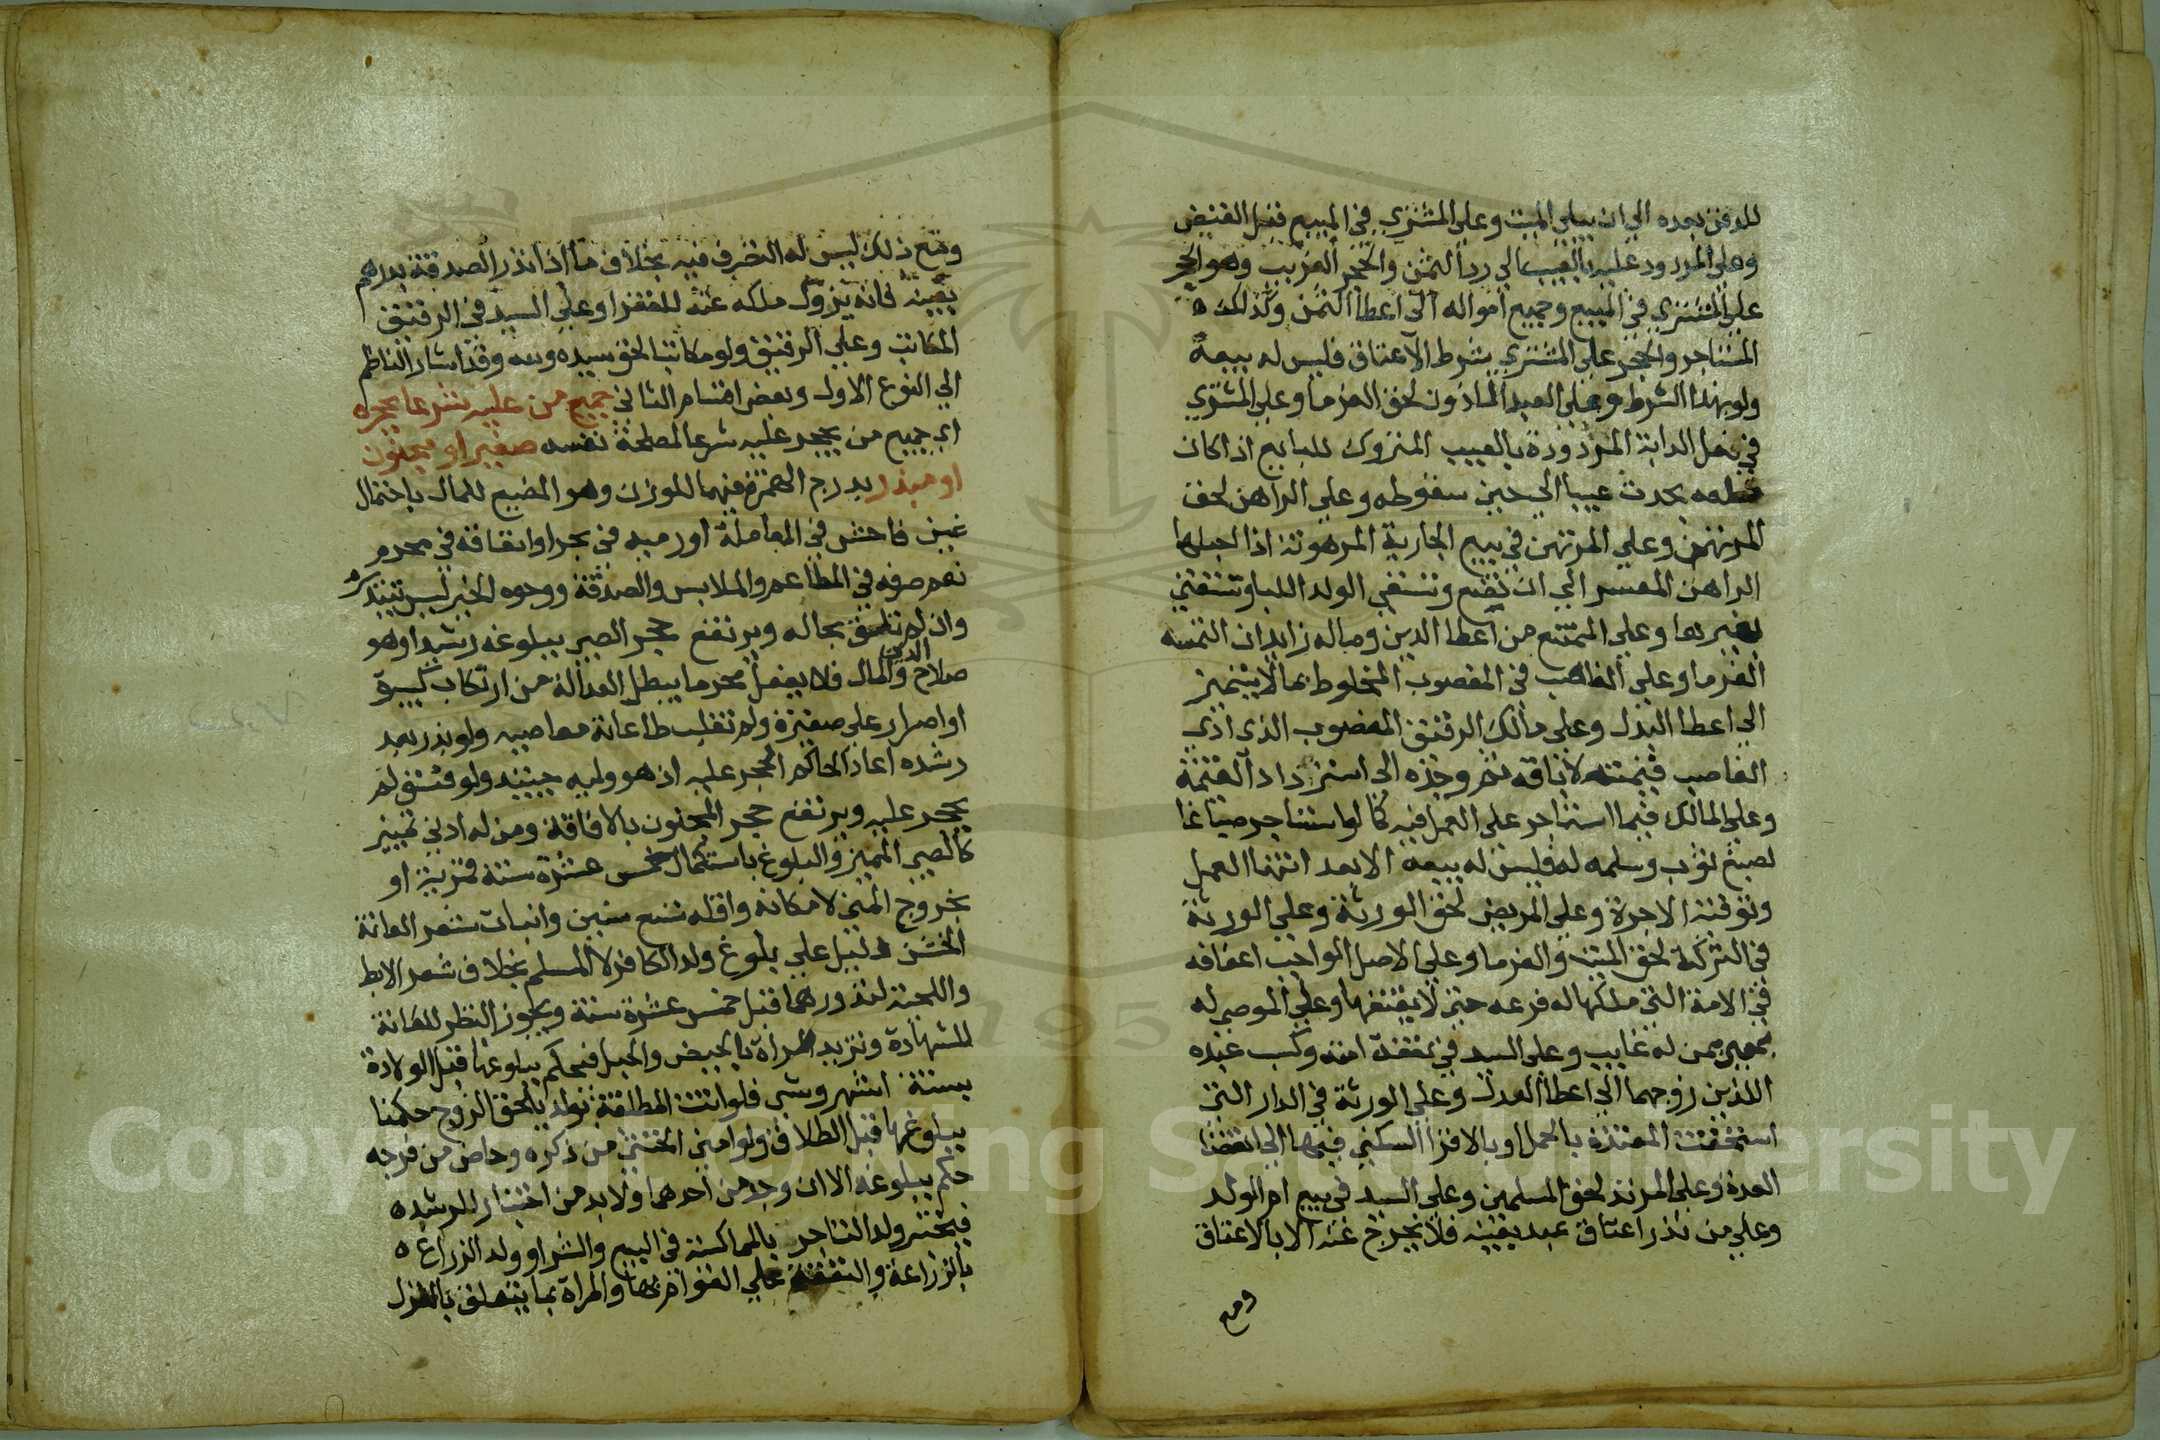 للدفن بعده الي ان يبلي الميت وعلي المشتري في المبيع قبل القبض
وعلي المردود عليه بالعيب الي رد الثمن والحجر الغريب وهو الحجر
علي المشتري في المبيع وجميع امواله الي اعطا الثمن وكذلك ه
المستاجر والحجر علي المشتري بشرط الاعتاق فليس له بيعه
ولو بهذا الشرط وعلي العبد الماذون لحق الغرما وعلي المشتري
في نعل الدابة المردودة بالعيب المتروك للبايع اذا كان
قطعه يحدث عيبا الي حين سقوطه وعلي الراهن لحق
المرتهن وعلي المرتهن في بيع الجارية المرهونة اذا احبلها
الراهن المعسر الي ان تضع وتسقي الولد اللبا وتستغني
بغيرها وعلي الممتنع من اعطا الدين وماله زايد ان التمسه
الغرما وعلي الغاصب في المغصوب المخلوط بما لا يتميز
الي اعطا البدل وعلي مالك الرقيق المغصوب الذي ادي
الغاصب قيمته لاباقه الي استرداد القيمة
وعلي المالك فيما استاجر علي العمل فيه كما لو استاجر صباغا
لصبغ ثوب وسلمه له فليس له بيعه الا بعد انتها العمل
وتوفية الاجرة وعلي المريض لحق الورثة وعلي الورثة
في التركة لحق الميت والغرما وعلي الاصل الواجب اعفافه
في الامة التي ملكها له فرعه حتي لا يعتقها وعلي الموصي له
بعين من له غايب وعلي السيد في نفقة امته وكسب عبده
اللذين زوجهما الي اعطا البدل وعلي الورثة في الدار التي
استحقت المعتدة بالحمل او بالاقرا السكني فيها الي انقضا
العدة وعلي المرتد لحق المسلمين وعلي السيد في بيع ام الولد
وعلي من نذر اعتاق عبد بعينه فلا يخرج عنه الا بالاعتاق
ومع
ومع ذلك ليس له التصرف فيه بخلاف ما اذا نذر الصدقة بدرهم
بعينه فانه يزول ملكه عنه للفقرا وعلي السيد في الرقيق
المكاتب وعلي الرقيق ولو مكاتبا لحق سيده ولله وقد اشار الناظم
الي النوع الاول وبعض اقسام الثاني جميع من عليه شرعا يحجر
اي جميع من يحجر عليه شرعا لمصلحة نفسه صغير او مجنون
او مبذر بدرج الهمزة فيهما للوزن وهو المضيع للمال باحتمال
غبن فاحش في المعاملة او رميه في بحر او انفاقه في محرم
نعم صرفه في المطاعم والملابس والصدقة ووجوه الخير ليس تبذيرا
وان لم تلق بحاله ويرتفع حجر الصبي ببلوغه رشيدا وهو
صلاح الدين والمال فلا يفعل محرما يبطل العدالة من ارتكاب كبيرة
او اصرار علي صغيرة ولم تغلب طاعاته معاصيه ولو بذر بعد
رشده اعاد الحاكم الحجر عليه اذ هو وليه حينيذ ولو فسق لم
يحجر عليه ويرتفع حجر المجنون بالافاقة ومن له ادني تمييز
كالصبي المميز والبلوغ باستكمال خمس عشرة سنة قمرية او
بخروج المني لامكانه واقله تسع سنين وانبات شعر العانة
الخشن دليل علي بلوغ ولد الكافر لا المسلم بخلاف شعر الابط
واللحية لندورهما قبل خمس عشرة سنة ويجوز النظر للعانة
للشهادة وتزيد المراة بالحيض والحبل فيحكم ببلوغها قبل الولادة
بستة اشهر وشي فلو اتت المطلقة بولد يلحق الزوج حكمنا
ببلوغها قبل الطلاق ولو امني الخنثي من ذكره وحاض من فرجه
حكم ببلوغه الا ان وجد من احدهما ولا بد من اختبار الرشد ه
فيختبر ولد التاجر بالمماكسة في البيع والشرا وولد الزراع ه
بالزراعة والنفقة علي القوام بها والمراة بما يتعلق بالغزل
Copyright © King Saud University
195